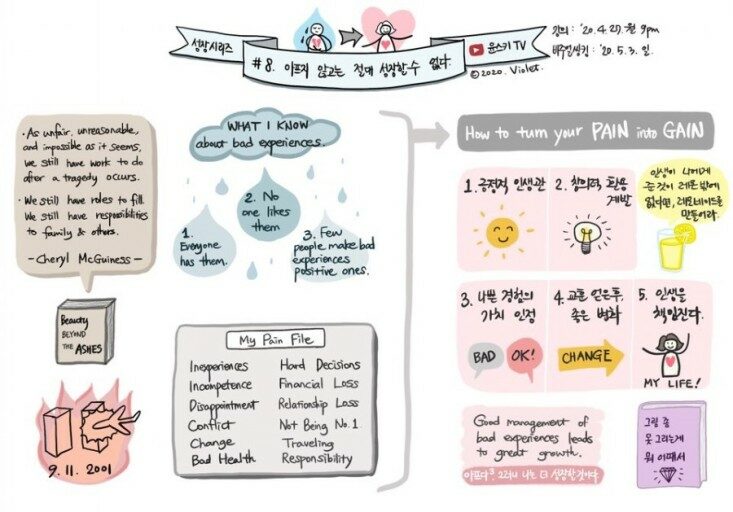 성장시리즈
#8. 아프지 않고는 절대 성장할 수 없다.
윤스키 TV
©2020. Violet.
강의 : '20. 4. 27. 월 9pm
비주얼씽킹 : '20. 5. 3. 일.
· As unfair, unreasonable,
and impossible as it seems,
we still have work to do
after a tragedy occurs.
· We still have roles to fill.
We still have responsibilities
to family & others.
- Cheryl McGuiness -
Beauty
BEYOND
THE ASHES
9. 11. 2001
WHAT I KNOW
about bad experiences.
1.
Everyone
has them.
2. No
one likes
them
3. Few
people make bad
experiences
positive ones.
My Pain File
Inexperiences Hard Decisions
Incompetence Financial Loss
Disappointment Relationship Loss
Conflict Not Being No.1.
Change Traveling
Bad Health Responsibility
How to turn your PAIN into GAIN
1. 긍정적 인생관
2. 창의력, 활용
개발
인생이 나에게
준 것이 레몬 밖에
없다면, 레모네이드를
만들어라.
3. 나쁜 경험의
가치 인정
BAD OK!
4. 교훈 얻은 후,
좋은 변화
CHANGE
5. 인생을
책임진다.
MY LIFE!
Good management of
bad experiences leads
to great growth.
아프다? 그러나 나는 더 성장할 것이다
그림 좀
못 그리는게
뭐 어때서